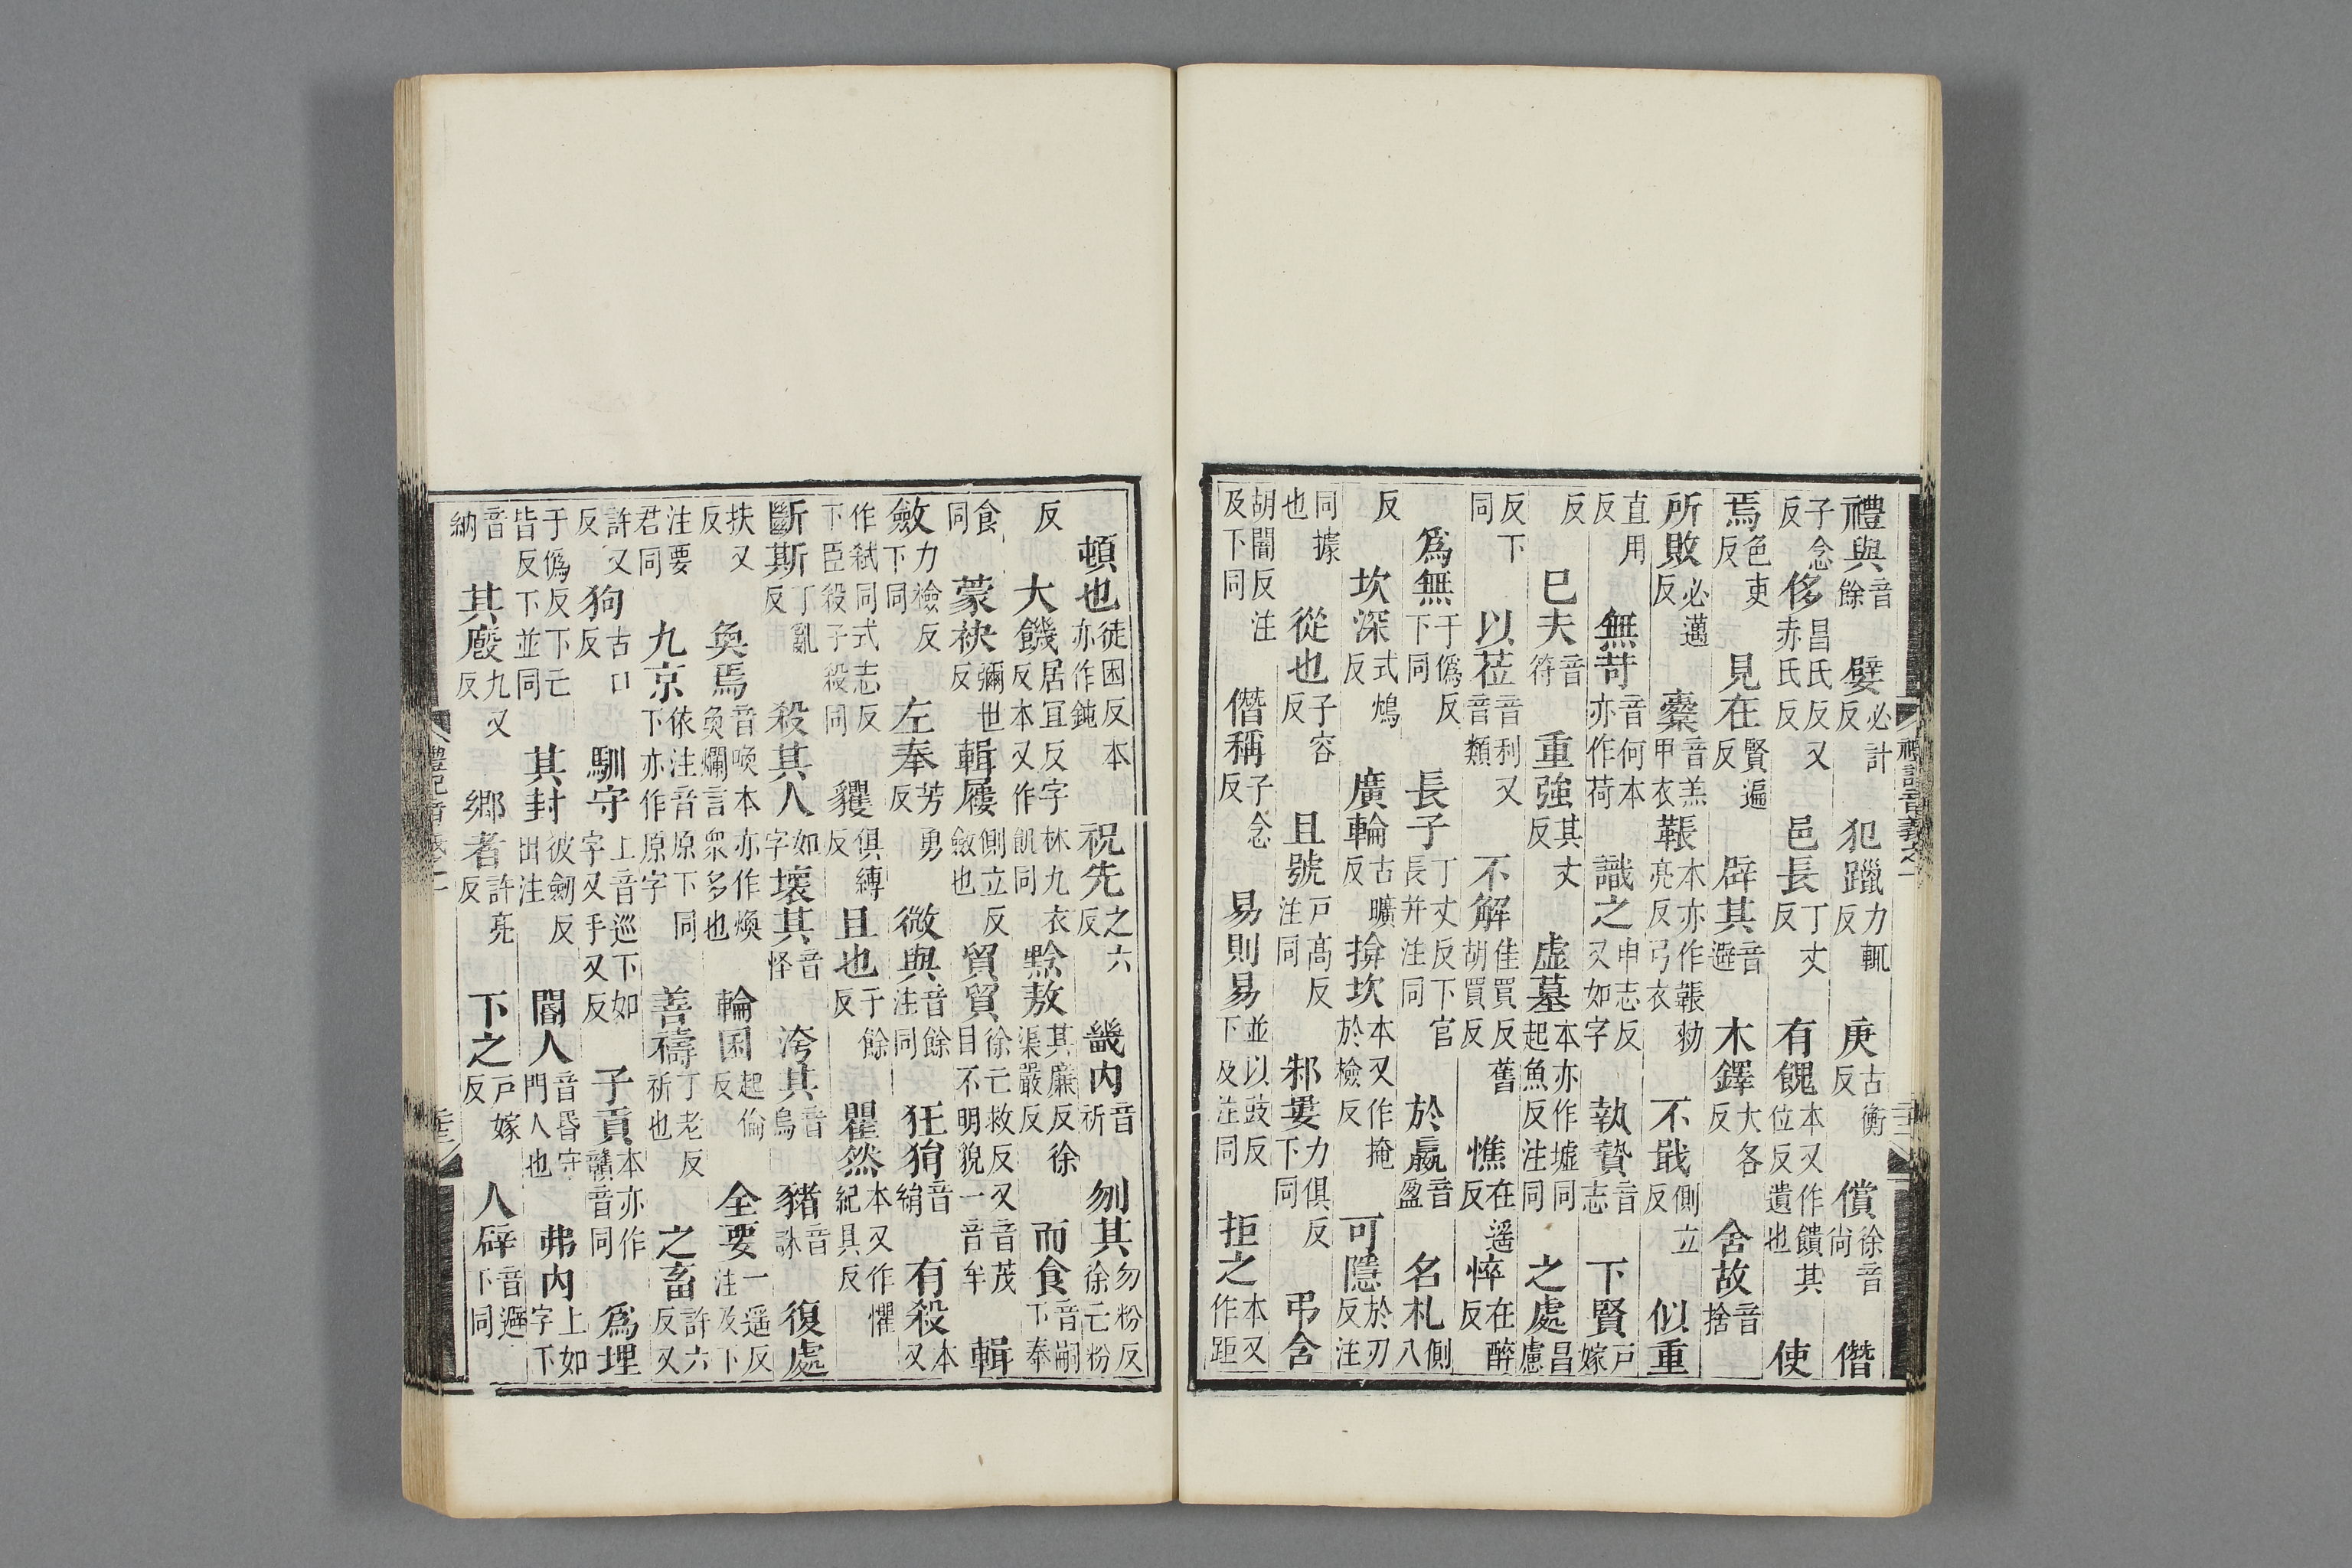 禮與音餘 嬖必計反 犯躐力輒反 庚古衡反 償徐音尚 僭
子念反 侈昌氏反又赤氏反 邑長丁丈反 有餽本又作饋其位反遺也 使
焉色吏反 見在賢遍反 辟其音避 木鐸大各反 舍故音捨
所敗必邁反 櫜音羔甲衣 韔本亦作韔勑亮反弓衣 不戢側立反 似重
直用反 無苛音何本亦作荷 識之申志反又如字 執贄音志 下賢戸嫁
反 已夫音符 重強其丈反 虛墓本亦作墟同起魚反注同 之處昌慮
反下同 以莅音利又音類 不解佳買反舊胡買反 憔在遥反 悴在醉反
爲無于僞反下同 長子丁丈反下官長并注同 於嬴音盈 名札側八
反 坎深式鴆反 廣輪古曠反 揜坎本又作掩於檢反 可隱於刃反注
同據也 從也子容反 且號戸高反注同 邾婁力俱反下同 弔含
胡闇反注及下同 僭稱子念反 易則易並以豉反下及注同 拒之本又作距
禮記音義之一
頓也徒困反本亦作鈍 祝先之六反 畿内音祈 刎其勿粉反徐亡粉
反 大饑居宜反字林九衣反本又作飢同 黔敖其廉反徐渠嚴反 而食音嗣下奉
食同 蒙袂彌世反 輯屨側立反斂也 貿貿徐亡救反又音茂一音牟目不明貌 輯
斂力檢反下同 左奉芳勇反 微與音餘注同 狂狷音絹 有殺本又
作弑同式志反下臣殺子殺同 貜俱縛反 且也子餘反 瞿然本又作懼紀具反
斷斯丁亂反 殺其人如字 壞其音怪 洿其音烏 豬音誅 復處
扶又反 奐焉音喚本亦作煥奐爛言衆多也 輪囷起倫反 全要一遥反注及下
注要君同 九京依注音原下同下亦作原字 善禱丁老反祈也 之畜許六反又
許又反 狗古口反 馴守上音巡下如字又手又反 子貢本亦作贛音同 爲埋
于僞反下亡皆反下並同 其封彼劒反出注 閽人音昏守門人也 弗内上如字下
音納 其廄九又反 鄉者許亮反 下之戸嫁反 人辟音避下同
禮記音義之一